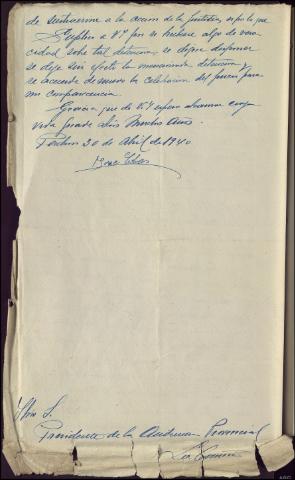 de sustraerme a la accion de la Justicia, es por lo que
Suplico a V.I. que se hubiere algo de vera
cidad sobre tal detencion, se digne disponer
se deje sin efecto la mencionada detencion y
se acuerde de nuevo la celebracion del juicio para
mi comparecencia
Gracia que de V.I. espera alcanzar cuya
vida guarde Dios Muchos Años.
30 de Abril de 1940
Jose
Ilmo S.
Presidente de la Audiencia Provincial